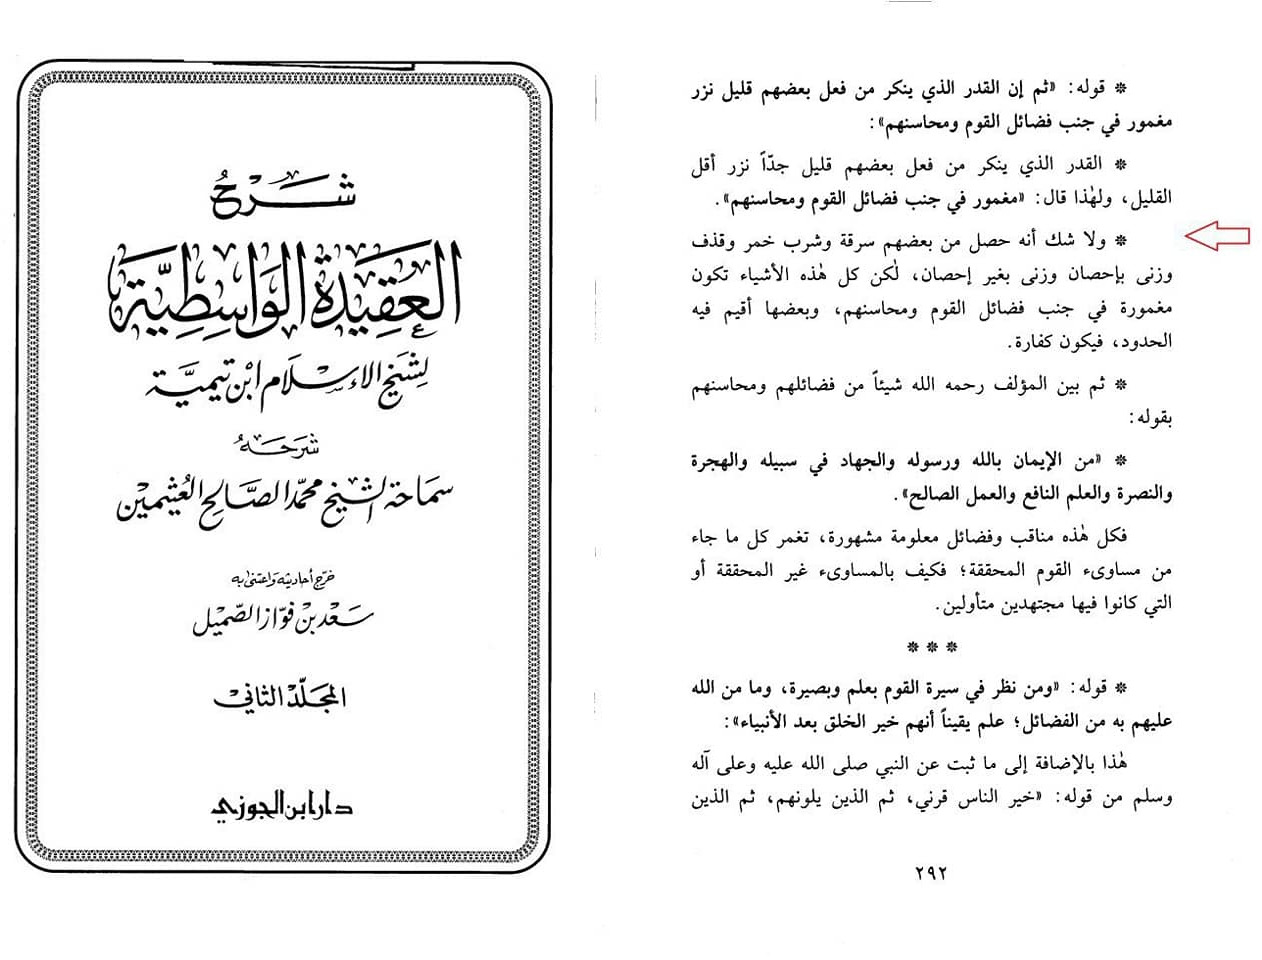 شرح
العقيدة الواسطية
لشيخ الإسلام ابن تيمية
شرحه
سماحة الشيخ محمد الصالح العثيمين
خرج أحاديثه واعتنى به
سعد بن فواز الصميل
المجلد الثاني
دار ابن الجوزي
* قوله: «ثم إن القدر الذي ينكر من فعل بعضهم قليل نزر
مغمور في جنب فضائل القوم ومحاسنهم»:
* القدر الذي ينكر من فعل بعضهم قليل جدّاً نزر أقل
القليل، ولهٰذا قال: «مغمور في جنب فضائل القوم ومحاسنهم».
* ولا شك أنه حصل من بعضهم سرقة وشرب خمر وقذف
وزنى بإحصان وزنى بغير إحصان، لٰكن كل هٰذه الأشياء تكون
مغمورة في جنب فضائل القوم ومحاسنهم، وبعضها أقيم فيه
الحدود، فيكون كفارة.
* ثم بين المؤلف رحمه الله شيئاً من فضائلهم ومحاسنهم
بقوله:
* «من الإيمان بالله ورسوله والجهاد في سبيله والهجرة
والنصرة والعلم النافع والعمل الصالح».
فكل هٰذه مناقب وفضائل معلومة مشهورة، تغمر كل ما جاء
من مساوىء القوم المحققة؛ فكيف بالمساوىء غير المحققة أو
التي كانوا فيها مجتهدين متأولين.
* * *
* قوله: «ومن نظر في سيرة القوم بعلم وبصيرة، وما من الله
عليهم به من الفضائل؛ علم يقيناً أنهم خير الخلق بعد الأنبياء»:
هٰذا بالإضافة إلى ما ثبت عن النبي صلى الله عليه وعلى آله
وسلم من قوله: «خير الناس قرني، ثم الذين يلونهم، ثم الذين
٢٩٢